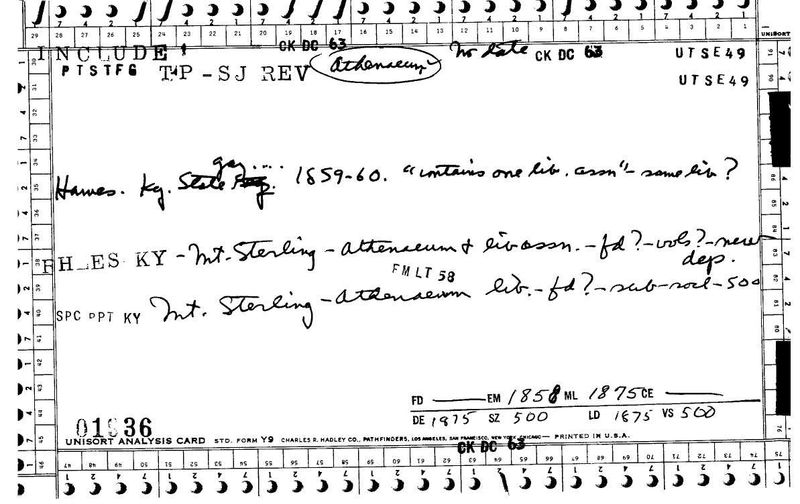 INCLUDE CK DC 63 Athenaeum No date CK DC 63 UTSE49
PTSTFG TP-SJ REV UTSE49
gaz....
Hawes. Ky. State Reg. 1859-60. "contains one lib. assn" - same lib?
H_ES KY - Mt. Sterling - Athenaeum & lib assn. - fd? - vols? - news
dep.
FMLT 58
SPC PPT KY Mt. Sterling - Athenaeum lib. - fd? - sub - socl - 500
FD EM 1858 ML 1875 CE
DE 1875 SZ 500 LD 1875 VS 500
01936
UNISORT ANALYSIS CARD STD. FORM Y9 CHARLES R. HADLEY CO., PATHFINDERS, LOS ANGELES, SAN FRANCISCO, NEW YORK, CHICAGO — PRINTED IN U.S.A.
CK DC 63